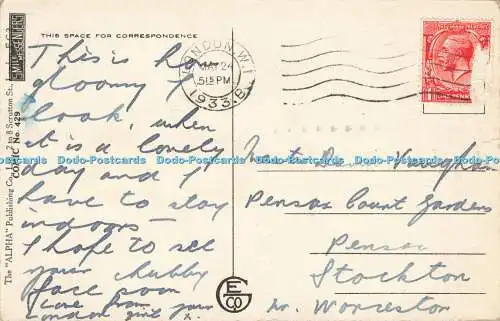 THIS SPACE FOR CORRESPONDENCE
This is how
gloomy I
look, when
it is a lovely
day and I
have to stay
indoors —
I hope to see
your chubby
face soon
Love from your
London girl x
LONDON. W.1
MAY 24
515 PM
1933. B
Vaughan
Pensax Court Gardens
Pensax
Stockton
Nr. Worcester
The "ALPHA" Publishing Co., 2 to 8 Scrutton St.,
COMIC No. 429
SMILE MESSENGERS
E
G
CO
Dodo-Postcards Dodo-Postcards Dodo-Postcards Dodo-Postcards Dodo-Postcards